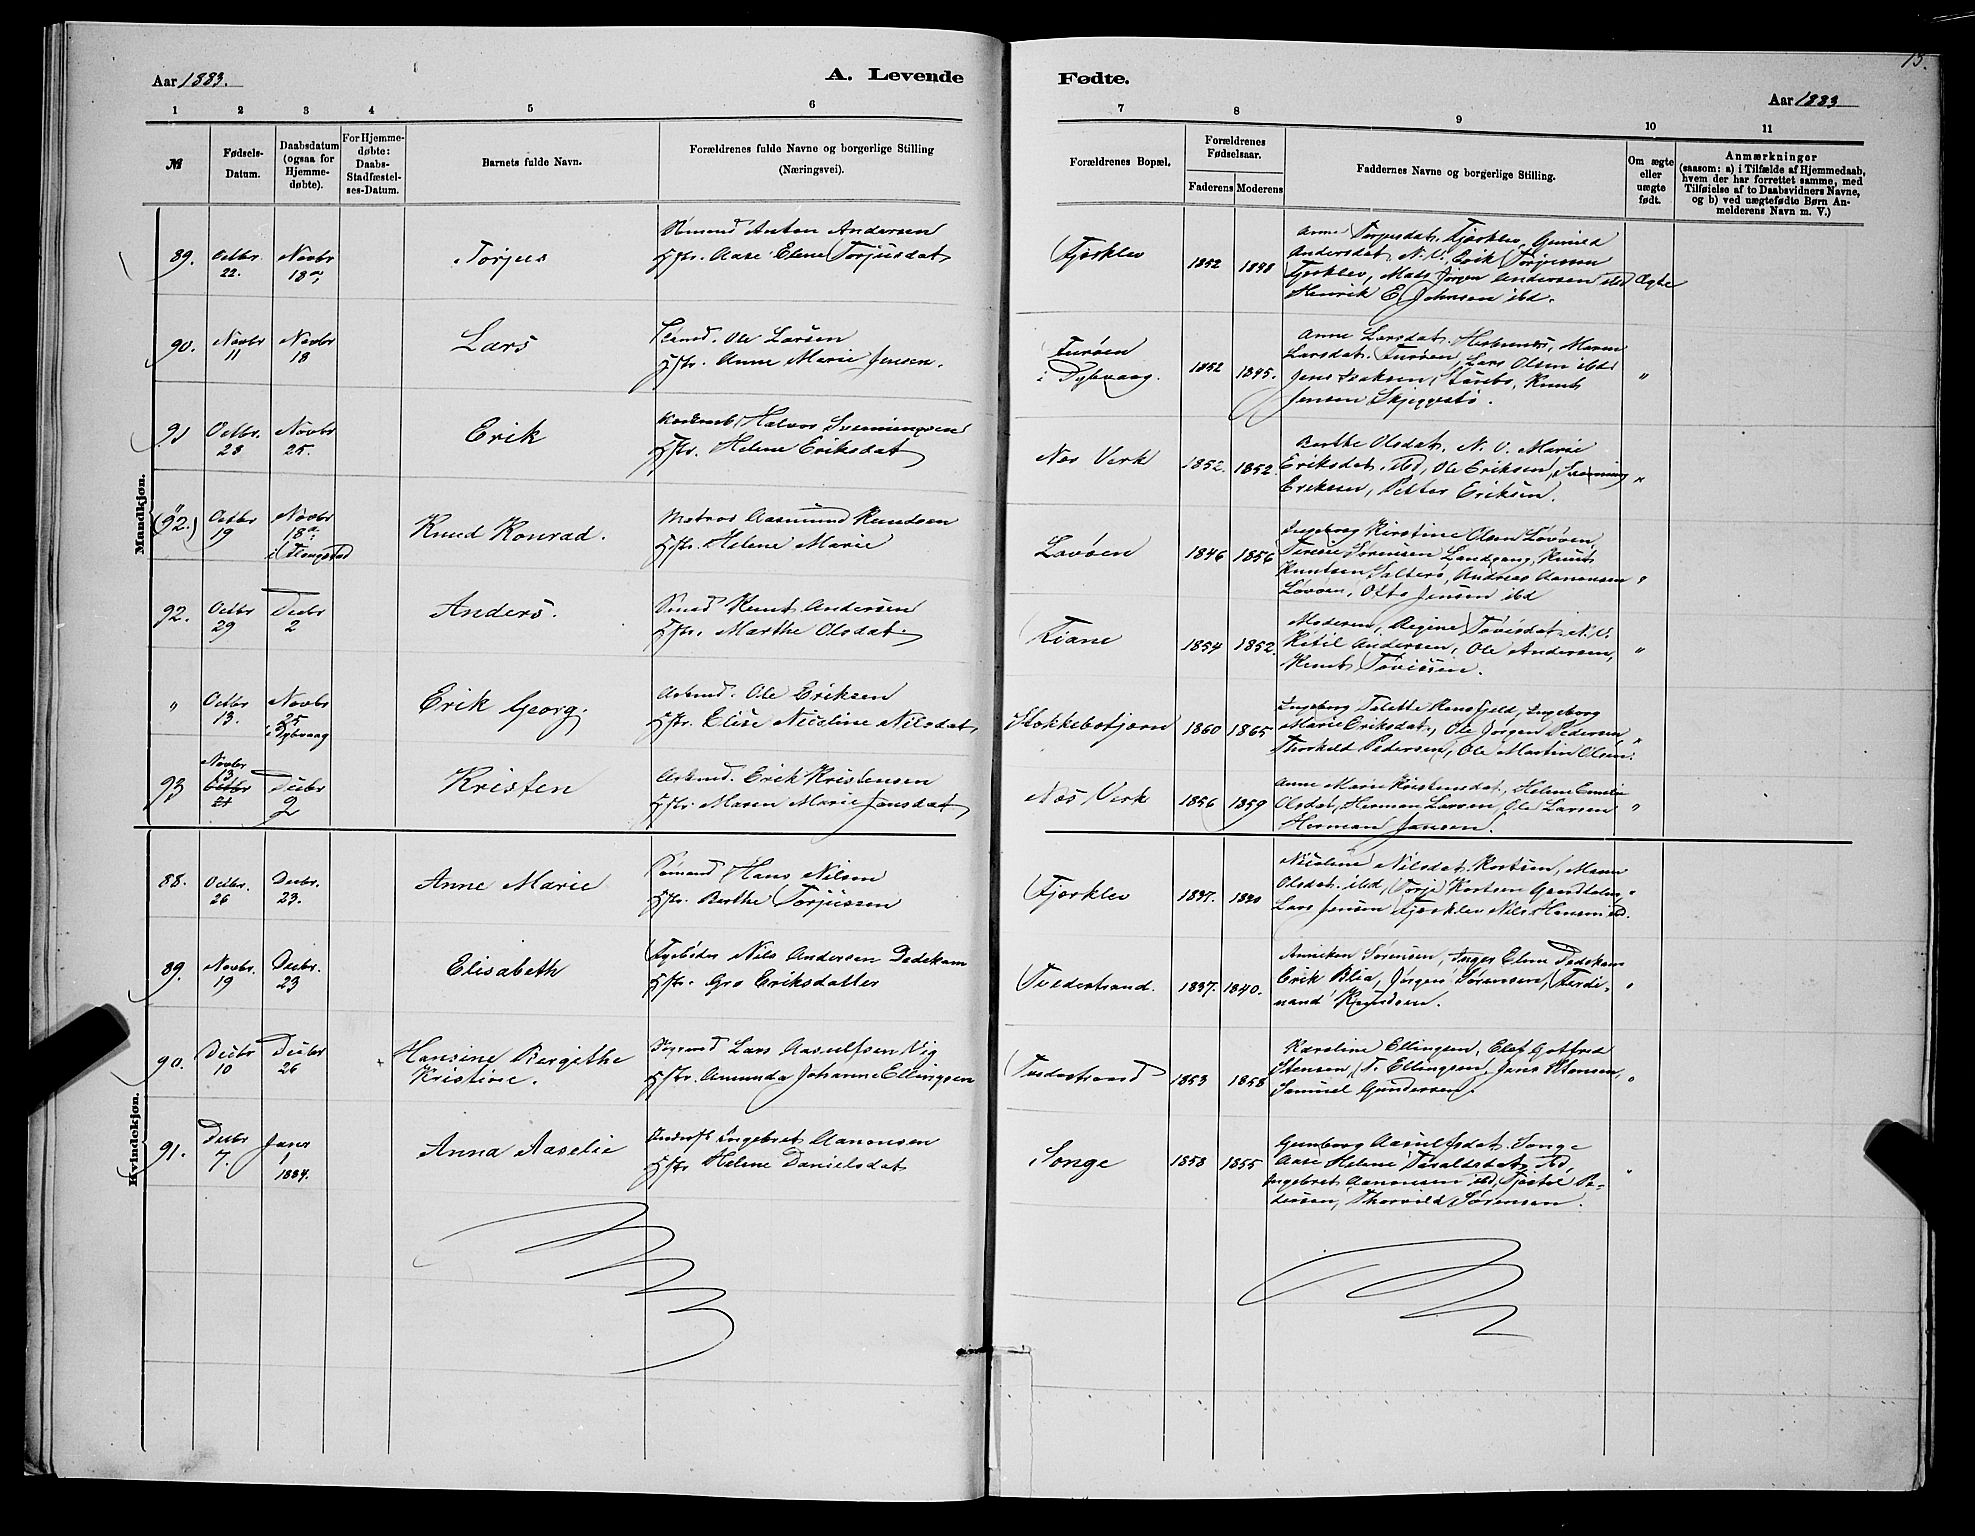 15.
Aar 1883.
A. Levende
Fødte.
Aar 1883
1 2 3 4 5 6 7 8 9 10 11
№
Fødsels-
Datum.
Daabsdatum
(ogsaa for
Hjemme-
døbte).
For Hjemme-
døbte:
Daabs-
Stadfæstel-
ses-Datum.
Barnets fulde Navn.
Forældrenes fulde Navne og borgerlige Stilling
(Næringsvei).
Forældrenes Bopæl.
Forældrenes
Fødselsaar.
Faderens Moderens
Faddernes Navne og borgerlige Stilling.
Om ægte
eller
uægte
født.
Anmærkninger
(saasom: a) i Tilfælde af Hjemmedaab,
hvem der har forrettet samme, med
Tilføielse af to Daabsvidners Navne,
og b) ved uægtefødte Børn An-
melderens Navn m. V.)
Mandkjøn.
89. Octbr. 22. Novbr 18
Tørjus
Anton Andersen
Hstr. Aase Elene Torjusdat
Fjærklev
1852 1848
Anne Torjusdat. Fjærklev, Gunild
Andersdat, N.V., Erik Torjussen
Fjærklev, Mads Jørgen Andersen ibd
Henrik E. Johnsen ibd.
Ægte
90. Novbr 11 Novbr 18
Lars
Ole Larsen
Hstr. Anne Marie Jensen.
Furøen
i Dybvaag.
1852 1845.
Anne Larsdat. Maren
Larsdat. Furøen, Lars Olsen ibd
Jens Isaksen, Knut
Jensen
"
91 Octbr. 28 Novbr 25.
Erik
Halvor Svenningsen
Hstr. Helene Eriksdat
Næs Verk
1852. 1852.
Berthe Olsdat. N. V. Marie
Eriksdat. ibd, Ole Eriksen, Svenning
Eriksen, Petter Eriksen.
"
(92.) Octbr 19 Novbr 18
i Flangstad
Knud Konrad.
Matros Aasmund Knudsen
Hstr. Helene Marie
Lovøen
1846 1856
Ingeborg Kirstine Olsen Løvøen,
Terese Sørensen Landgang, Knut
Knutsen Salterø, Andreas Aanonsen
Løvøen, Jensen ibd
"
92. Octbr 29 Decbr 2
Anders.
Knut Andersen
Hstr. Marthe Olsdat.
Tiane
1854 1852.
Moderen, Regine Tovisdat. N.V.
Ketil Andersen, Ole Andersen,
Knut Tovissen.
"
" Octbr 13. Novbr 25
i Dybvaag
Erik Georg.
Arbmd. Ole Eriksen
Hstr. Elise Nicoline Nilsdat,
Stokkebotjern
1860 1865
Ingeborg Talette Ramsfjeld, Ingeborg
Marie Eriksdat, Ole Jørgen Pedersen,
Thorkild Pedersen, Ole Martin Olsen.
"
93 Novbr 13 Decbr 2
Kristen
Arbmd. Erik Kristensen
Hstr. Maren Marie Jensdat
Næs Verk
1856 1859
Anne Marie Kristensdat, Helene Emelie
Olsdat, Herman Larsen, Ole Larsen
Herman Jensen.
"
Kvindekjøn.
88. Octbr. 26 Decbr. 23.
Anne Marie
Hans Nilsen
Hstr. Berthe Torjussen
Fjærklev
1837. 1840
Nicoline Nilsdat. Maren
Olsdat. ibd, Torje
Lars Jensen Fjærklev Nils Hansen ibd.
"
89. Novbr. 19 Decbr. 23
Elisabeth
Nils Andersen Dedekam
Hstr. Gro Eriksdatter
Tvedestrand.
1837. 1840.
Anniken Sørensen, Inger Elene Dedekam
Erik Blia, Jørgen Sørensen, Ferdi-
nand Knudsen.
"
90. Decbr 10 Decbr 26
+ Hansine Bergithe
Kristine.
Lars Aasulfsen Vig
Hstr. Amunda Johanne Ellingsen
Tvedestrand
1853 1858
Karoline Ellingsen, Elef Gotfred
Stensen, T. Ellingsen, Jens Stensen,
Samuel Gundersen.
"
91. Decbr 7. Janr 1 1884.
Anna Aaselie
Ingebret Aanonsen
Hstr Helene Danielsdat
Songe
1858 1855
Gunborg Aasulfsdat. Songe
Aase Helene Taraldsdat, ibd,
Ingebret Aanonsen ibd, Tjøstel Pe-
tersen, Thorvild Sørensen.
"